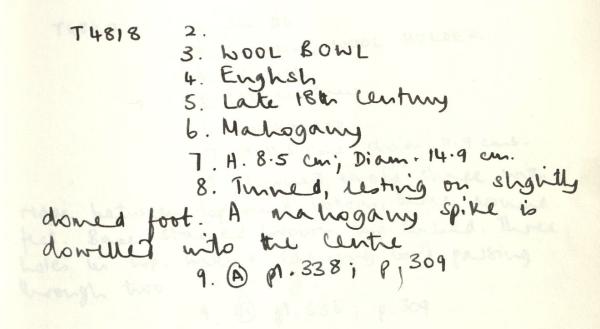 T4818 2.
3. WOOL BOWL
4. English
5. Late 18th century
6. Mahogany
7. H. 8.5 cm; Diam. 14.9 cm.
8. Turned, resting on slightly
domed foot. A mahogany spike is
dowelled into the centre
9. Ⓐ pl. 338; p, 309